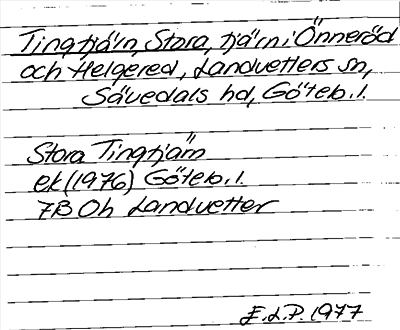 Tingtjärn, Stora, tjärn i Önneröd
och Helgered, Landvetters sn,
Sävedals hd, Göteb. l.
Stora Tingtjärn
ek (1976) Göteb. l.
7B Oh Landvetter
E.L.P. 1977